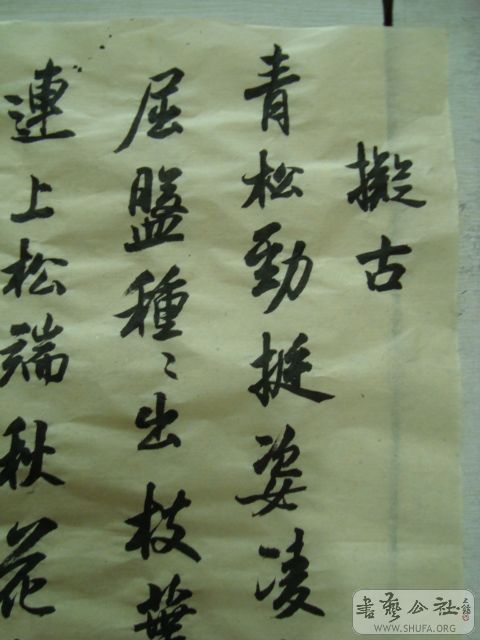 擬古
青松勁挺姿凌
屈盤種〻出枝葉
連上松端秋花
書藝公社
WWW.SHUFA.ORG